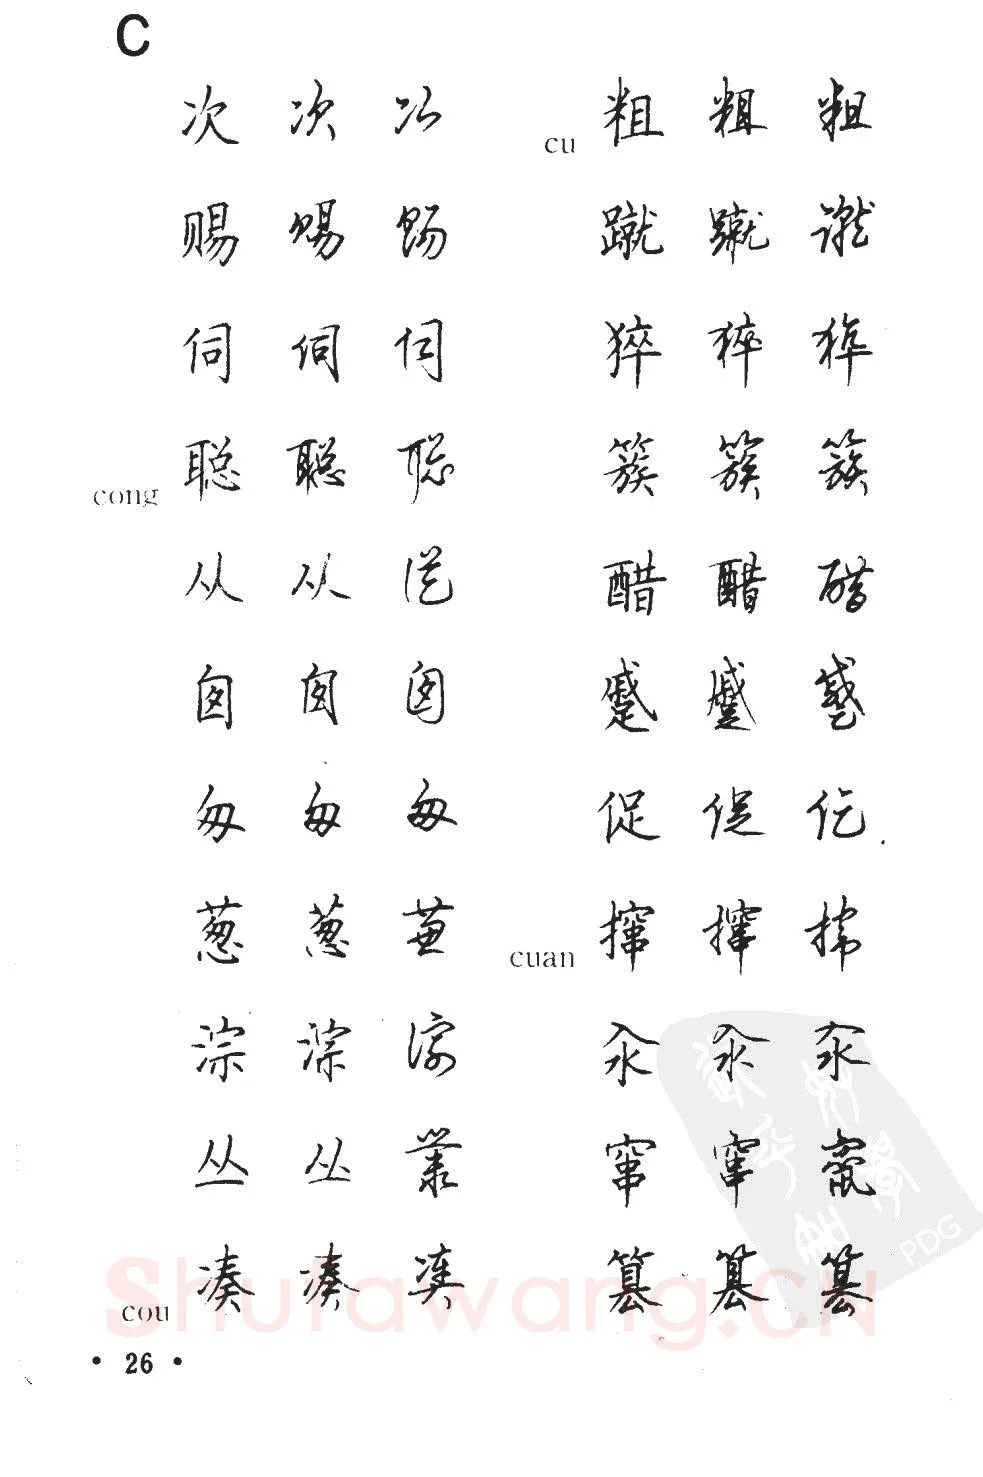 C
次 次 次
赐 赐 赐
伺 伺 伺
cong 聪 聪 聪
从 从 從
囱 囱 囱
匆 匆 匆
葱 葱 葱
淙 淙 淙
丛 丛 叢
cou 凑 凑 凑
cu 粗 粗 粗
蹴 蹴 蹴
猝 猝 猝
簇 簇 簇
醋 醋 醋
蹙 蹙 蹙
促 促 促
cuan 撺 撺 撺
汆 汆 汆
窜 窜 竄
篡 篡 篡
• 26 •
Shufawang.CN
PDG